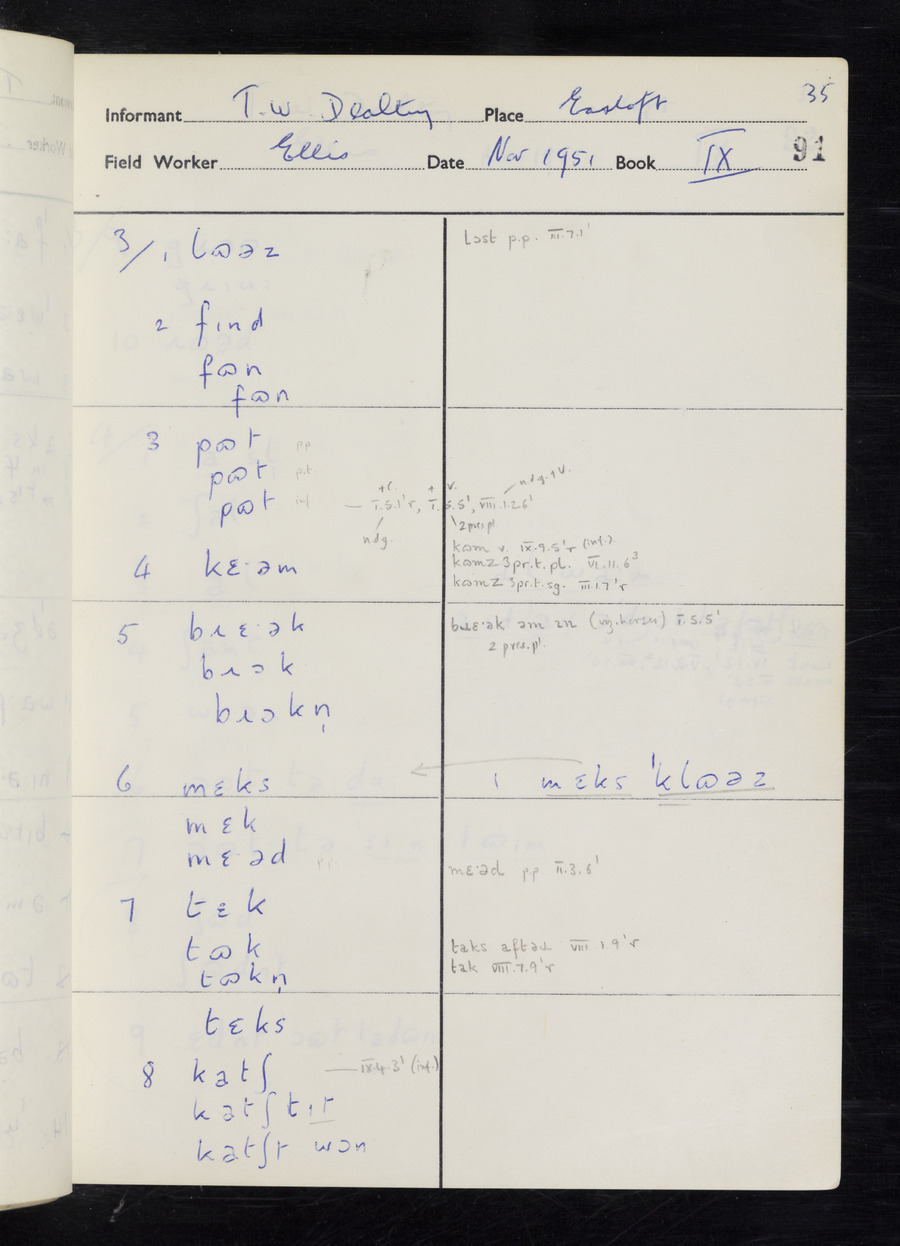 35
Informant T.W. Dealtry Place Eastoft
Field Worker Ellis Date Nov 1951 Book IX 91
3/ 1 lɷəz
lɔst p.p. III.7.1'
2 fɪnd
fɷn
fɷn
3 pɷt p.p.
pɷt p.t.
pɷt inf. — I.5.1'r, I.5.5', VIII.1.26'
+c. + v. ndg. + v.
ndg. 2 pres.pl.
kɷm v. IX.9.5'r (inf.)
kɷmz 3pr.t.pl. VI.11.6³
4 kɛ·əm
kɷmz 3pr.t.sg. III.1.7'r
5 bɹɛ·ək
bɹɛ·ək əm ɪn (vg. horses) I.5.5'
2 pres.pl.
bɹɔk
bɹɔkn̩
6 mɛks
1 mɛks 'klɷəz
mɛk
mɛ·əd p.p.
mɛ·əd pp II.3.6'
7 tɛk
tɷk
taks aftəɹ VIII.1.9'r
tɷkn̩
tak VIII.7.9'r
tɛks
8 katʃ — IX.4.3' (inf.)
katʃt ɪt
katʃt wɔn